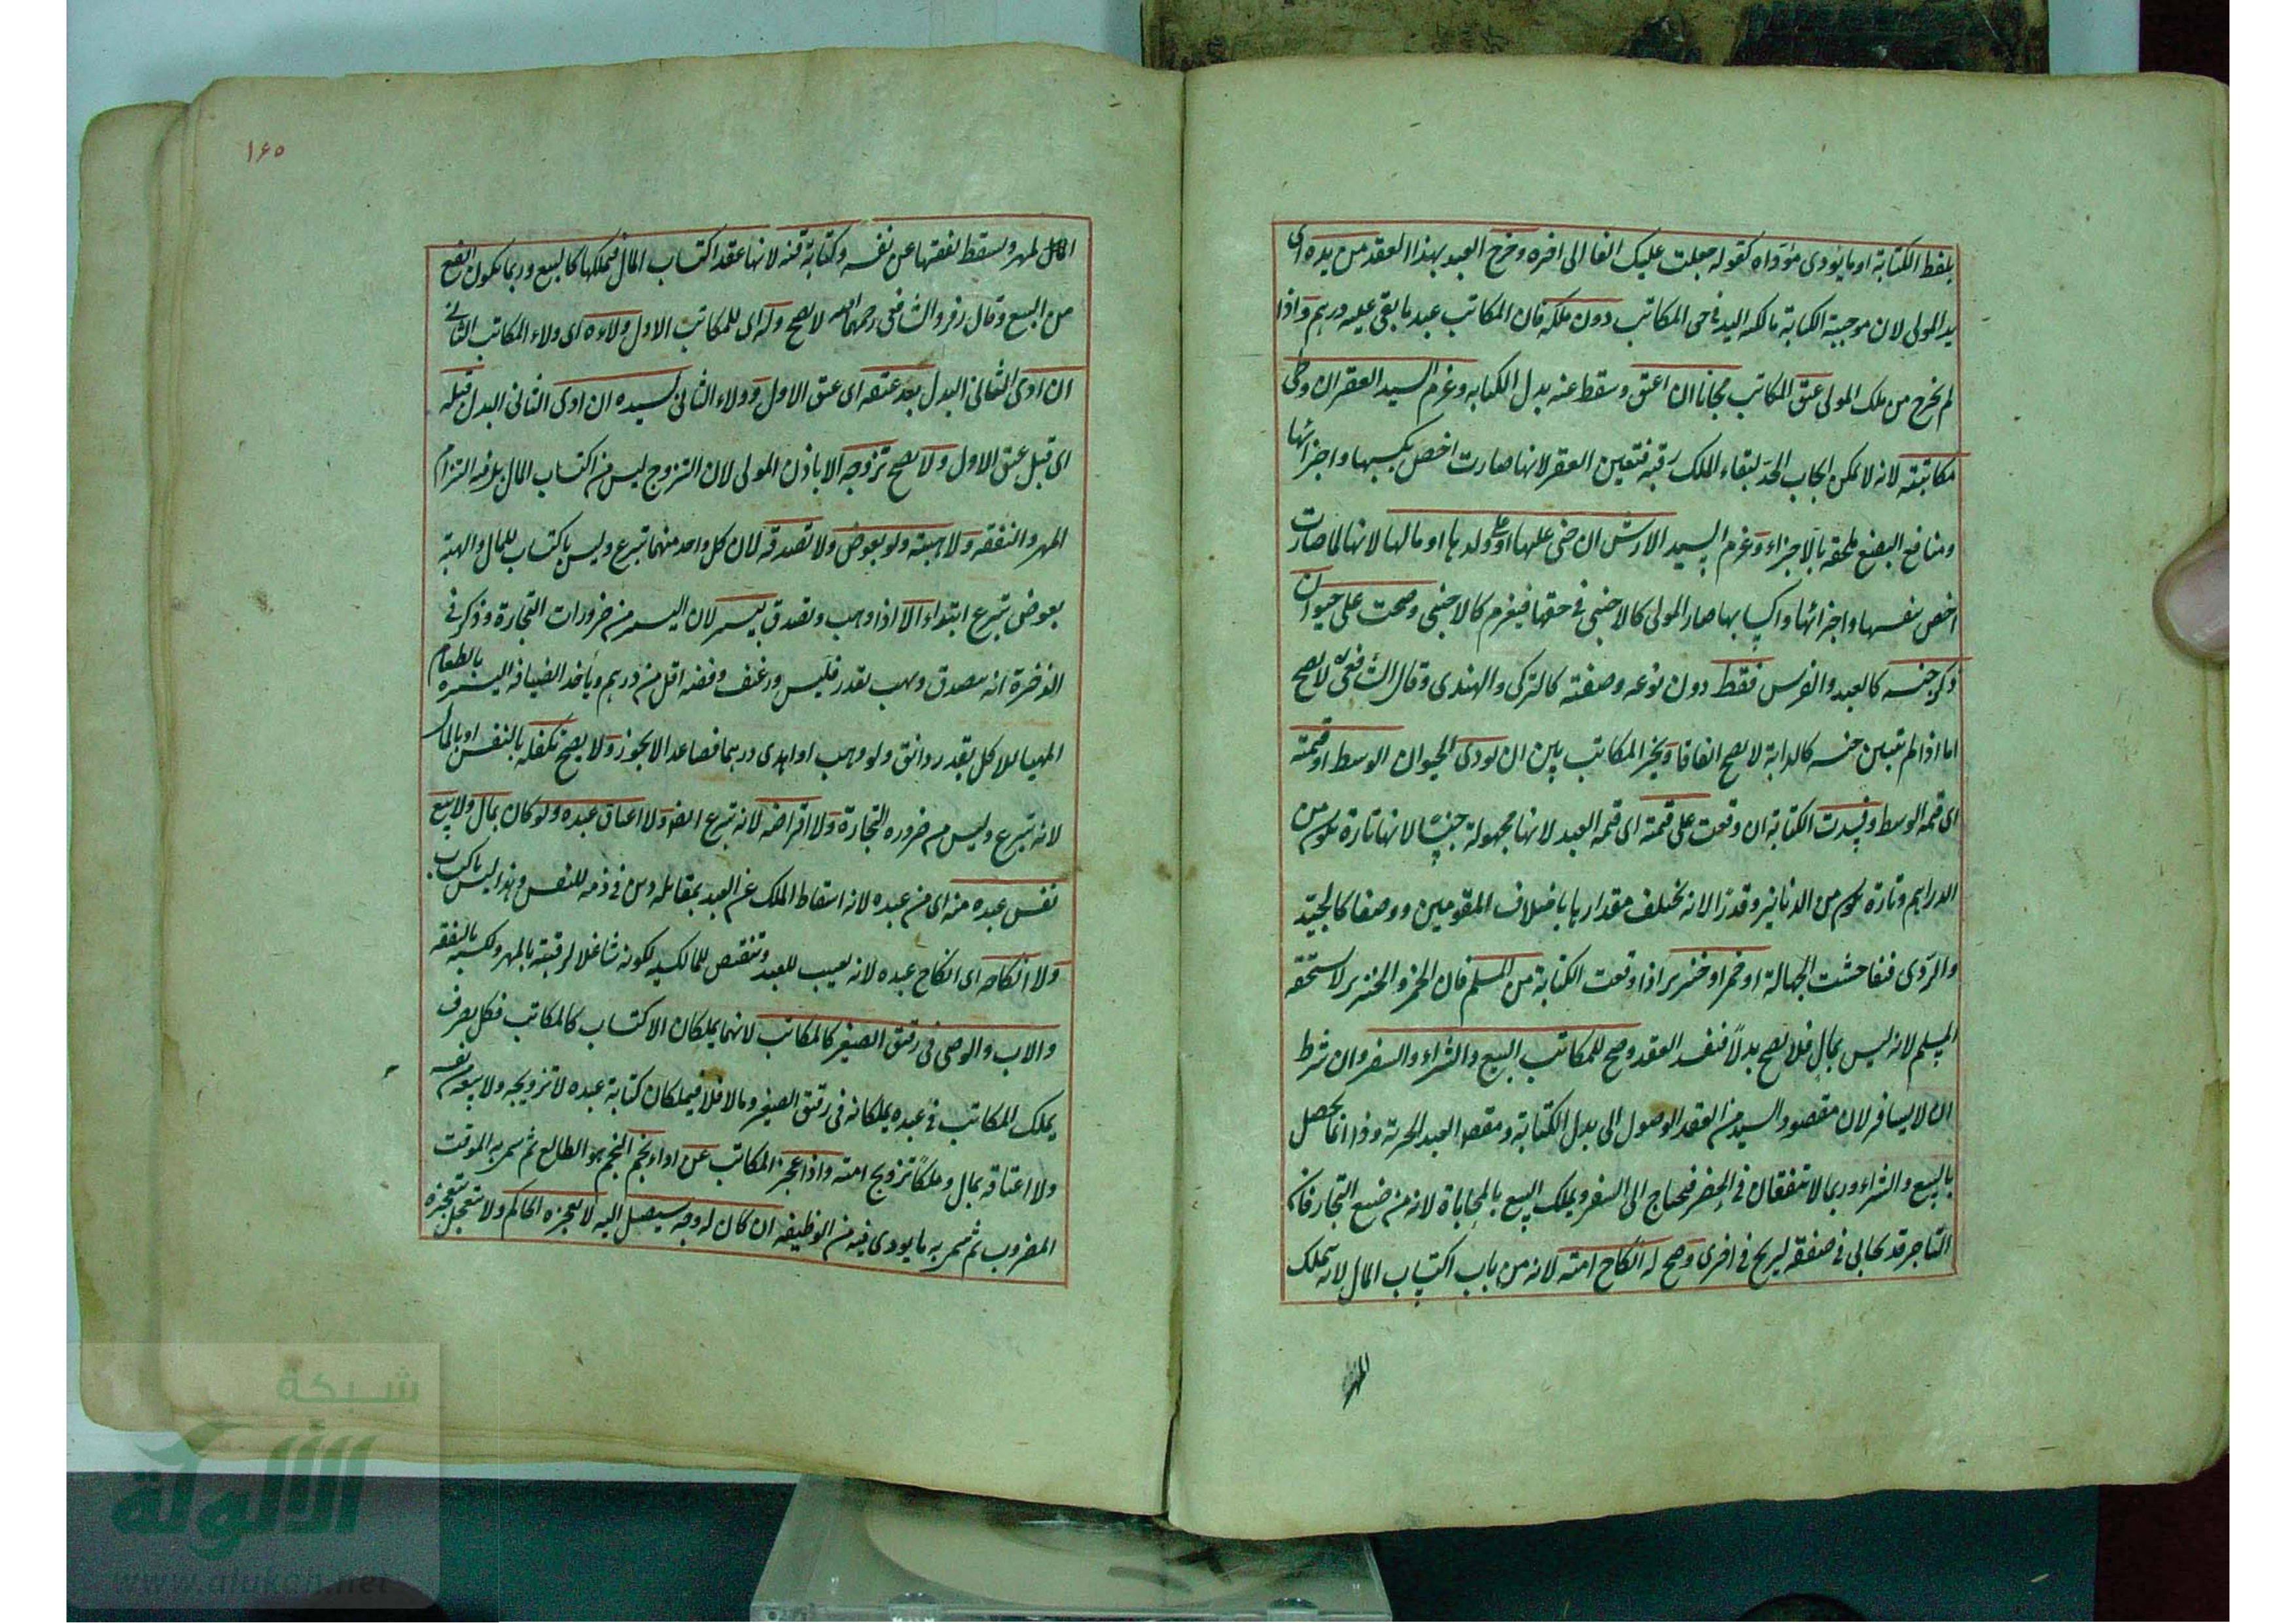 بلفظ الكتابة او ما يؤدى مؤداه كقوله جعلت عليك الفا الى اخره وخرج العبد بهذا العقد من يده اى
يد المولى لان موجبة الكتابة مالكية اليد فى حق المكاتب دون ملكه فان المكاتب عبد ما بقى عليه درهم واذا
لم يخرج من ملك المولى عتق المكاتب مجانا ان اعتق وسقط عنه بدل الكتابة وغرم السيد العقر ان وطى
مكاتبته لانه لا يمكن ايجاب الحد لبقاء الملك رقبة فتعين العقر لانها صارت اخص بكسبها واجزائها
ومنافع البضع ملحقة بالاجزاء وغرم السيد الارش ان جنى عليها او على ولدها او مالها لانها لما صارت
اخص بنفسها واجزائها واكسابها صار المولى كالاجنبى فى حقها فيغرم كالاجنبى وصحت على حيوان
ذكر جنسه كالعبد والفرس فقط دون نوعه وصفته كالتركى والهندى وقال الشافعى لا يصح
اما اذا لم يتبين جنسه كالدابة لا يصح اتفاقا ويخير المكاتب بين ان يودى الحيوان الوسط او قيمته
اى قيمة الوسط وفسدت الكتابة ان وقعت على قيمته اى قيمة العبد لانها مجهولة جنسا لانها تارة تقوم من
الدراهم وتارة تقوم من الدنانير وقدرا لانه يختلف مقدارها باختلاف المقومين ووصفا كالجيد
والردى فتفاحشت الجهالة او خمر او خنزير اذا وقعت الكتابة من المسلم فان الخمر والخنزير لا يستحقه
المسلم لانه ليس بمال فلا يصح بدلا فيفسد العقد وصح للمكاتب البيع والشراء والسفر وان شرط
ان لا يسافر لان مقصود السيد من العقد الوصول الى بدل الكتابة ومقصد العبد الحرية وذا انما يحصل
بالبيع والشراء وربما لا يتفقان فى الحضر فيحتاج الى السفر ويملك البيع بالمحاباة لانه من صنيع التجار فان
التاجر قد يحابى فى صفقة ليربح فى اخرى وصح له انكاح امته لانه من باب اكتساب المال لانه يملك
المهر
١٦٥
المال لمهر وسقط نفقتها عن نفسه وكتابة قنه لانها عقد اكتساب المال فيملكها كالبيع وربما يكون انفع
من البيع وقال زفر والشافعى رحمهما الله لا يصح وله اى للمكاتب الاول ولاءه اى ولاء المكاتب الثانى
ان ادى الثانى البدل بعد عتقه اى عتق الاول وولاء الثانى لسيده ان ادى الثانى البدل قبله
اى قبل عتق الاول ولا يصح تزوجه الا باذن المولى لان التزوج ليس من اكتساب المال بل فيه التزام
المهر والنفقة ولا هبته ولو بعوض ولا تصدقه لان كل واحد منهما تبرع وليس باكتساب للمال والهبة
بعوض تبرع ابتداء الا اذا وهب وتصدق بيسير لان اليسير من ضرورات التجارة وذكر فى
الذخيرة انه يتصدق ويهب بقدر فليس ورغيف وفضة اقل من درهم وياخذ الضيافة اليسيرة بالطعام
المهيا للاكل بقدر دانق ولو وهب او اهدى درهما فصاعدا لا يجوز ولا يصح تكفله بالنفس او بالمال
لانه تبرع وليس من ضرورة التجارة ولا اقراضه لانه تبرع ايضا ولا اعتاق عبده ولو كان بمال ولا بيع
نفس عبده منه اى من عبده لانه اسقاط الملك عن العبد بمقابلة دين فى ذمة المفلس وهذا ليس باكتساب
ولا انكاحه اى انكاح عبده لانه تعييب للعبد وتنقيص للمالكية لكونه شاغلا لرقبته بالمهر وكسبه بالنفقة
والاب والوصى فى رقيق الصغير كالمكاتب لانهما يملكان الاكتساب كالمكاتب فكل تصرف
يملك المكاتب فى عبده يملكانه فى رقيق الصغير وما لا فلا فيملكان كتابة عبده لا تزويجه ولا بيعه من نفسه
ولا اعتاقه بمال وملكا تزويج امته واذا عجز المكاتب عن اداء نجم النجم هو الطالع ثم سمى به الموقت
المضروب ثم سمى به ما يودى فيه من الوظيفة ان كان له وجه سيصل اليه لا يعجزه الحاكم ولا يستعجل بتعجيزه
شبكة
الألوكة
www.alukah.net